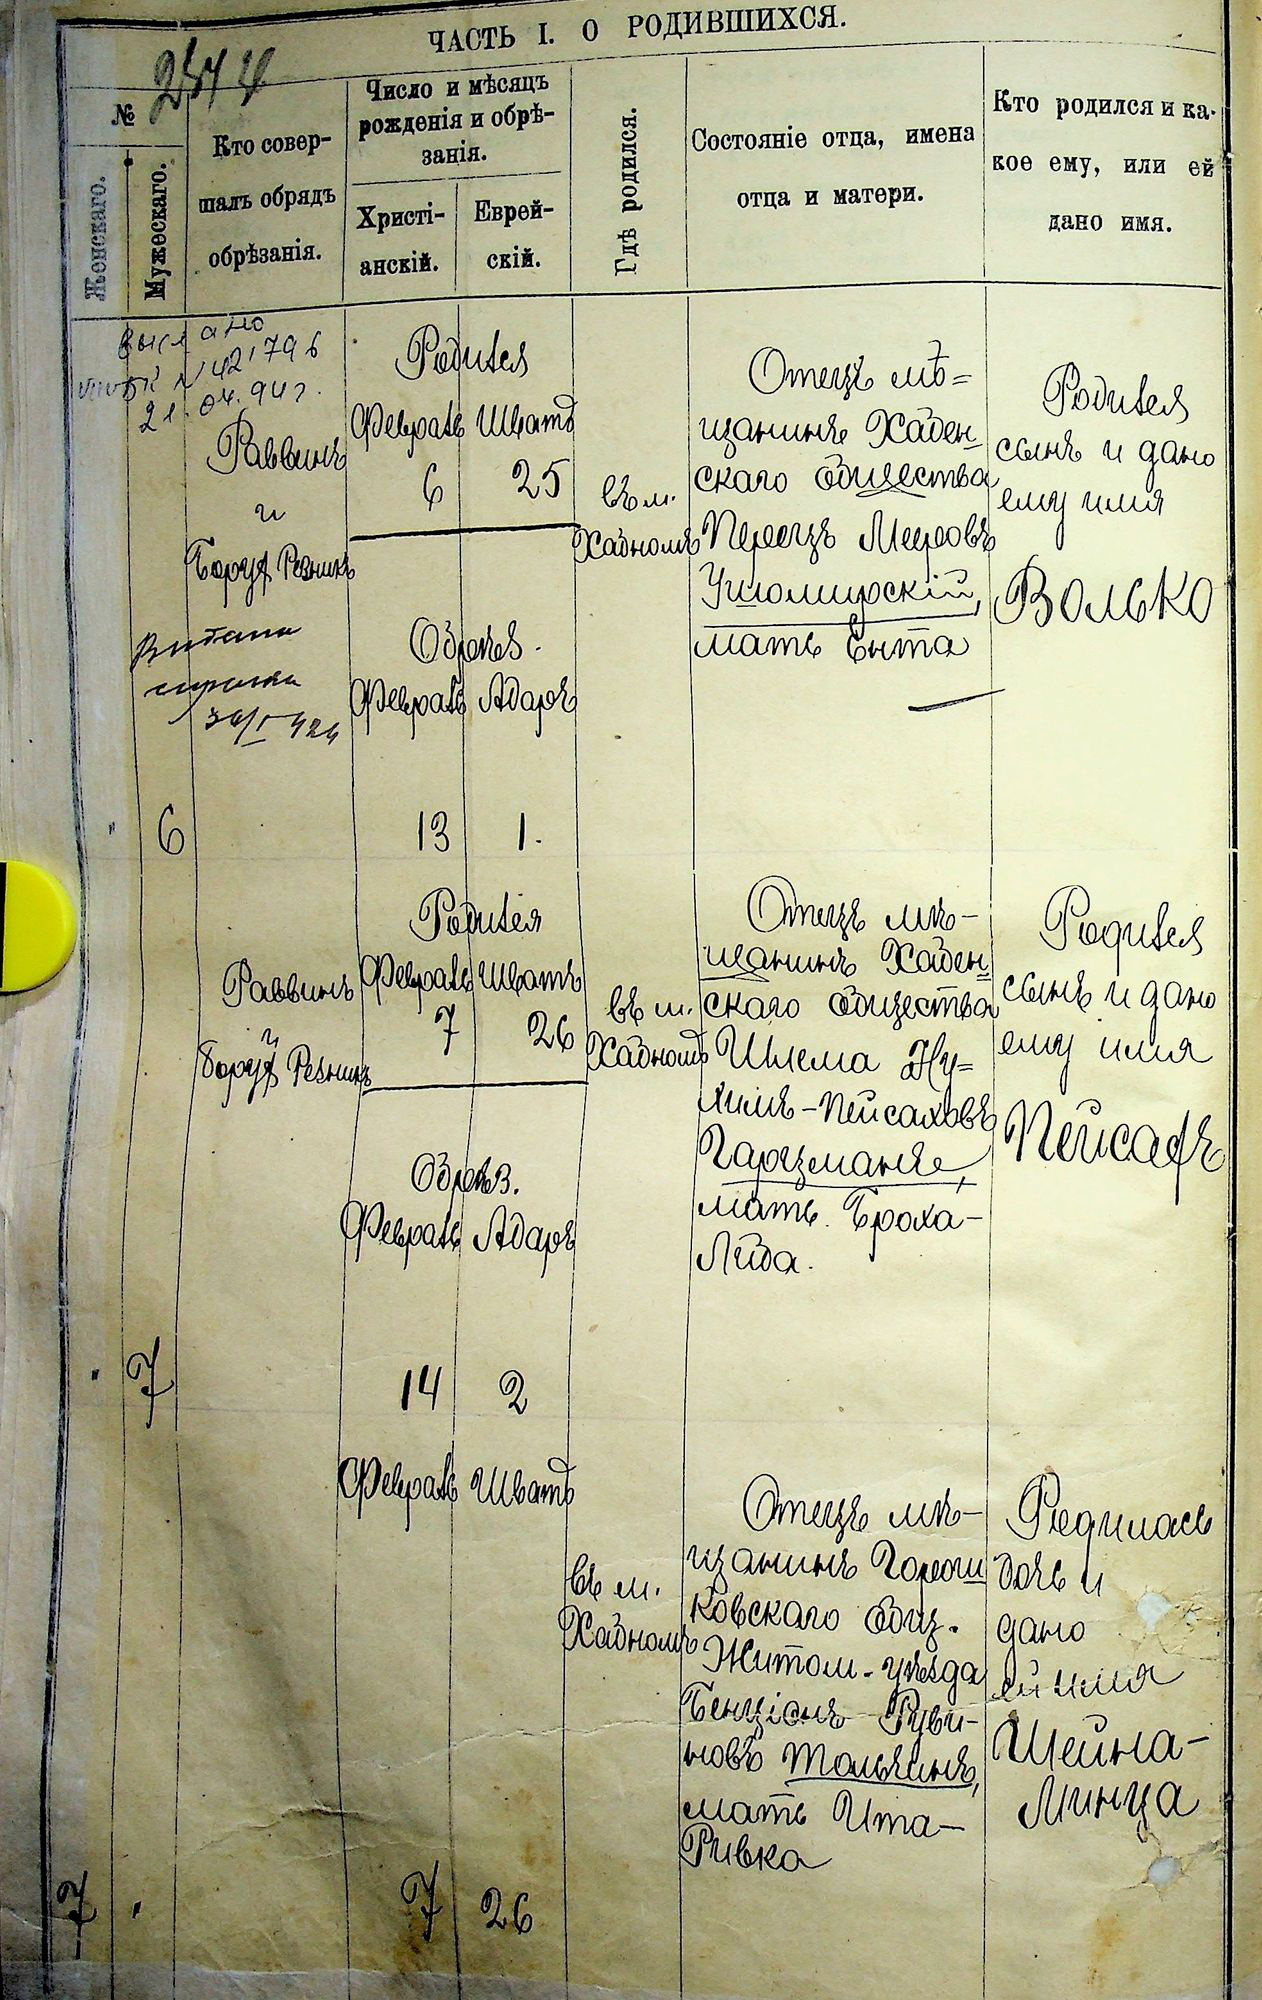 ЧАСТЬ I. О РОДИВШИХСЯ.
№
Женскаго.
Мужескаго.
Кто совер-
шалъ обрядъ
обрѣзанія.
Число и мѣсяцъ
рожденія и обрѣ-
занія.
Христі-
анскій.
Еврей-
скій.
Гдѣ родился.
Состояніе отца, имена
отца и матери.
Кто родился и ка-
кое ему, или ей
дано имя.
выслано
N 421796
21.04.94г.
Раввинъ
и
Борух Резникъ
6
Родился
Февраль Шватъ
6 25
Обрѣз.
Февраль Адаръ
13 1.
въ м.
Хабномъ
Отецъ мѣ=
щанинъ Хабен-
скаго общества
Перецъ Мееровъ
Ушомирскій,
мать Ента
Родился
сынъ и дано
ему имя
Волько
7
Раввинъ
и
Борух Резникъ
Родился
Февраль Шватъ
7 26
Обрѣз.
Февраль Адаръ
14 2
въ м.
Хабномъ
Отецъ мѣ-
щанинъ Хабен-
скаго общества
Шлема Ну=
химъ-Пейсаховъ
мать Броха-
Лйба.
Родился
сынъ и дано
ему имя
Пейсахъ
7
Февраль Шватъ
7 26
въ м.
Хабномъ
Отецъ мѣ-
щанинъ Горош
ковскаго общ.
Житом. уѣзда
Бенціонъ Руви-
новъ
мать Ита-
Ривка
Родилась
дочь и
дано
ей имя
Шейна-
Минца